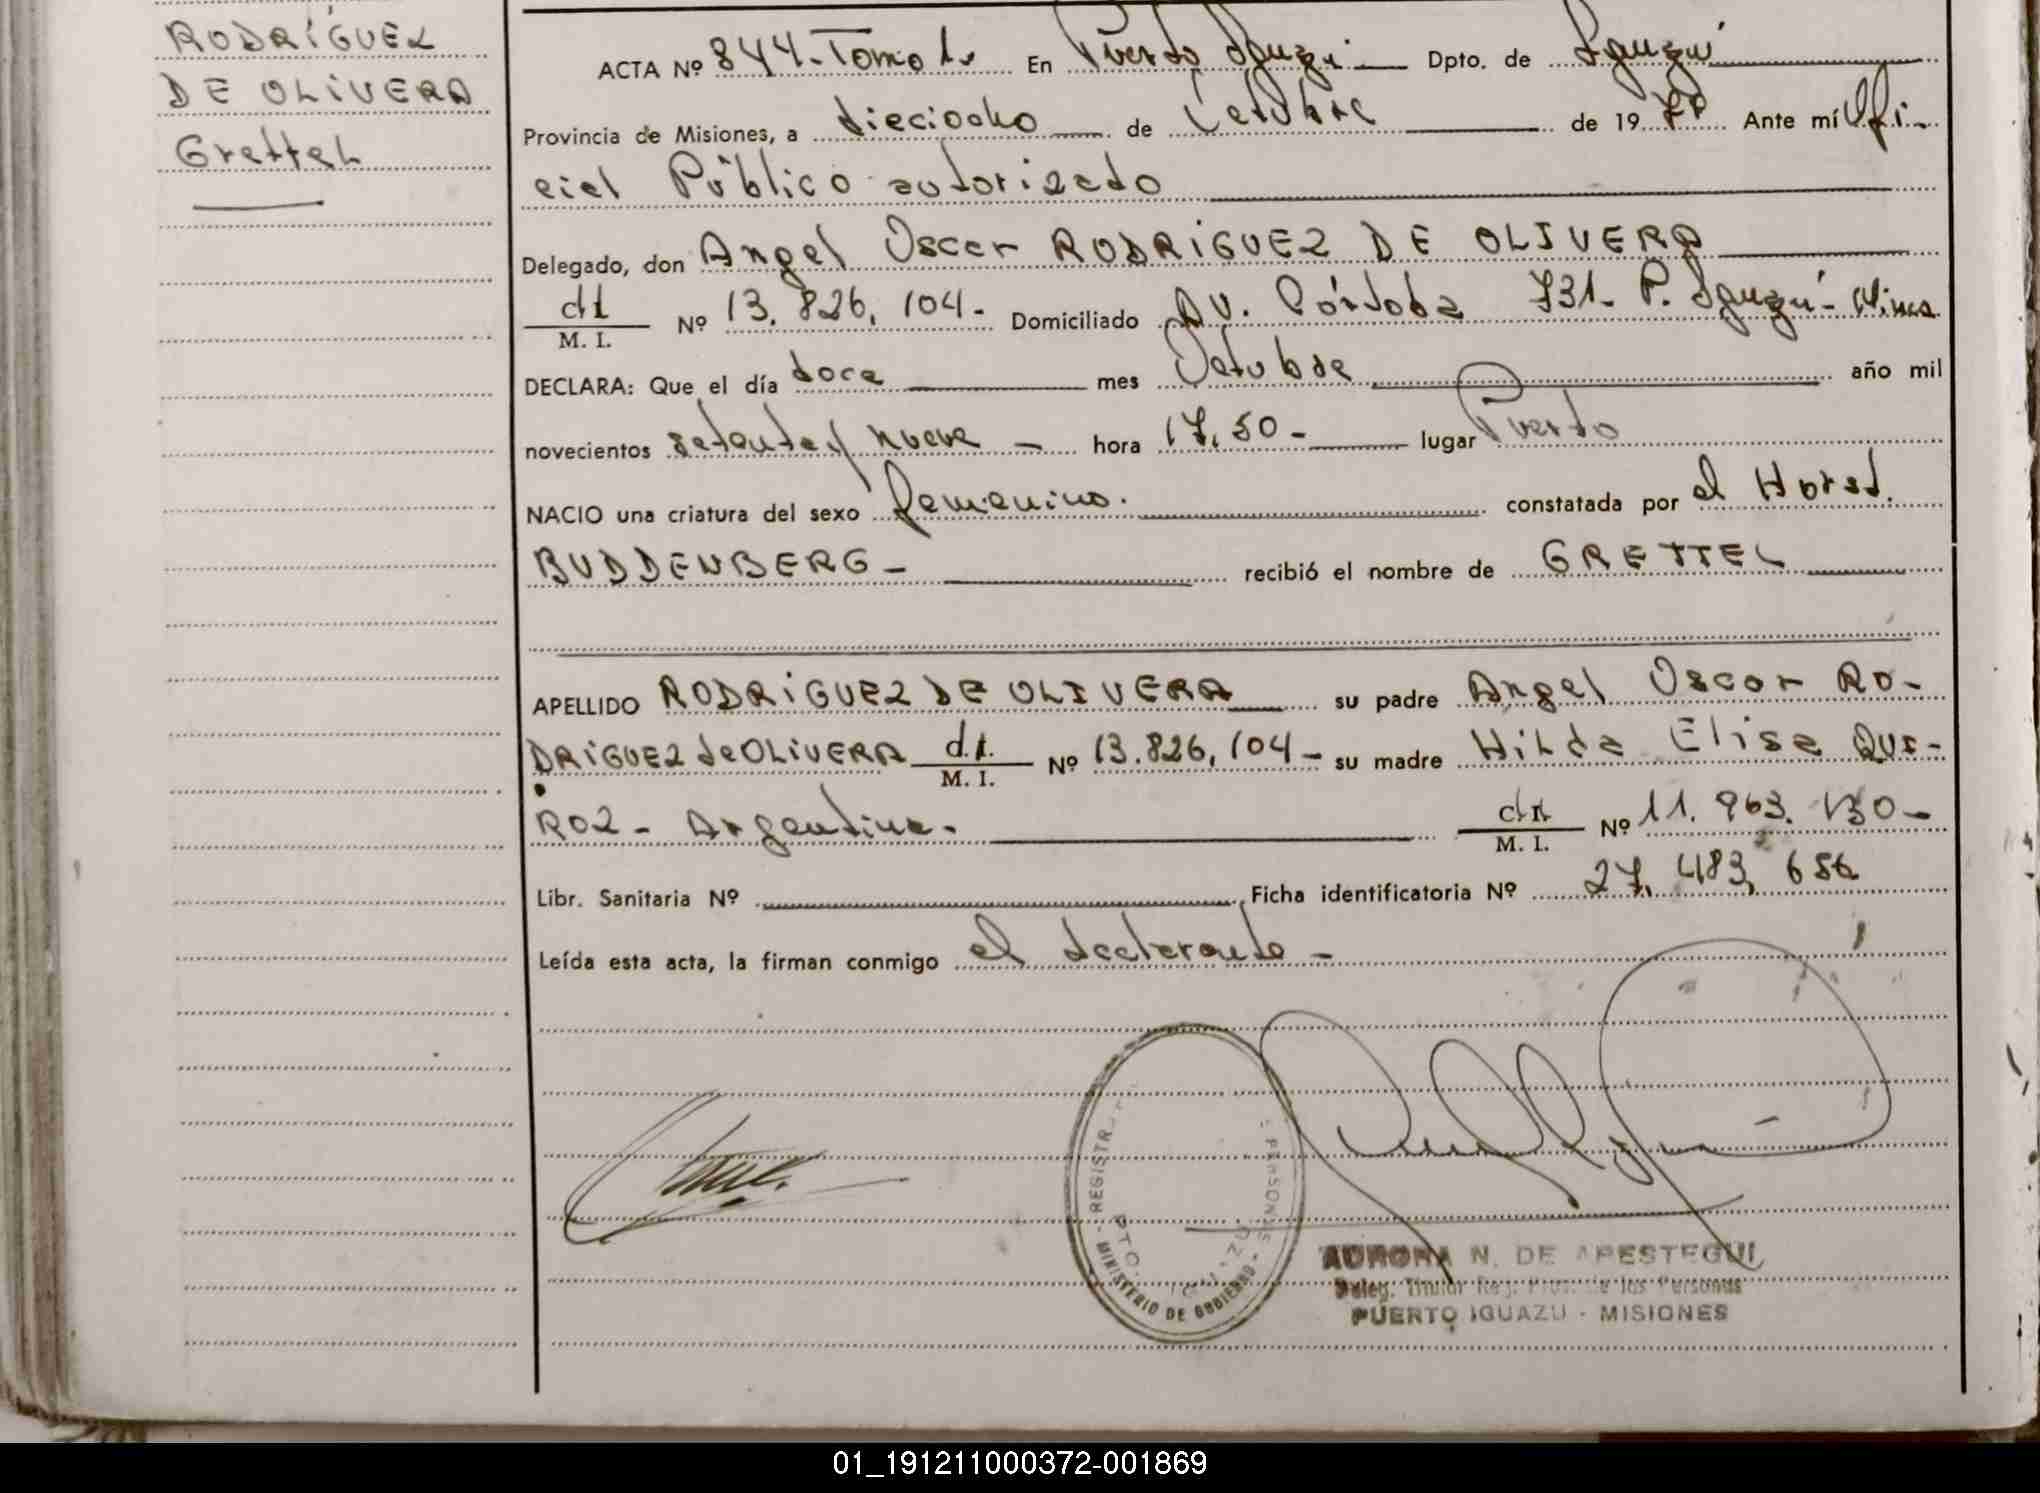 RODRÍGUEZ
DE OLIVERA
Grettel
ACTA Nº 844 - Tomo 1º En Puerto Iguazú Dpto. de Iguazú
Provincia de Misiones, a dieciocho de Octubre de 1979 Ante mí Ofi-
cial Público autorizado
Delegado, don Angel Oscar RODRÍGUEZ DE OLIVERA
M. I. Nº 13.826.104 - Domiciliado AV. Córdoba 731 - P. Iguazú - Mnes
DECLARA: Que el día doce mes Octubre año mil
novecientos setenta y nueve - hora 17,50 - lugar Puerto
NACIO una criatura del sexo femenino. constatada por el Horst.
BUDDENBERG - recibió el nombre de GRETTEL
APELLIDO RODRÍGUEZ DE OLIVERA su padre Angel Oscar RO-
DRÍGUEZ de OLIVERA d.i. M. I. Nº 13.826.104 - su madre Hilda Elisa QUI-
ROZ - Argentina - M. I. Nº 11.963.130 -
Libr. Sanitaria Nº Ficha identificatoria Nº 27.483.656
Leída esta acta, la firman conmigo el declarante -
REGISTR
PERSONAS
PTO.
MINISTERIO DE GOBIERNO
AURORA N. DE APESTEGUI
Deleg. Titular Reg. Prov. de las Personas
PUERTO IGUAZU - MISIONES
01_191211000372-001869